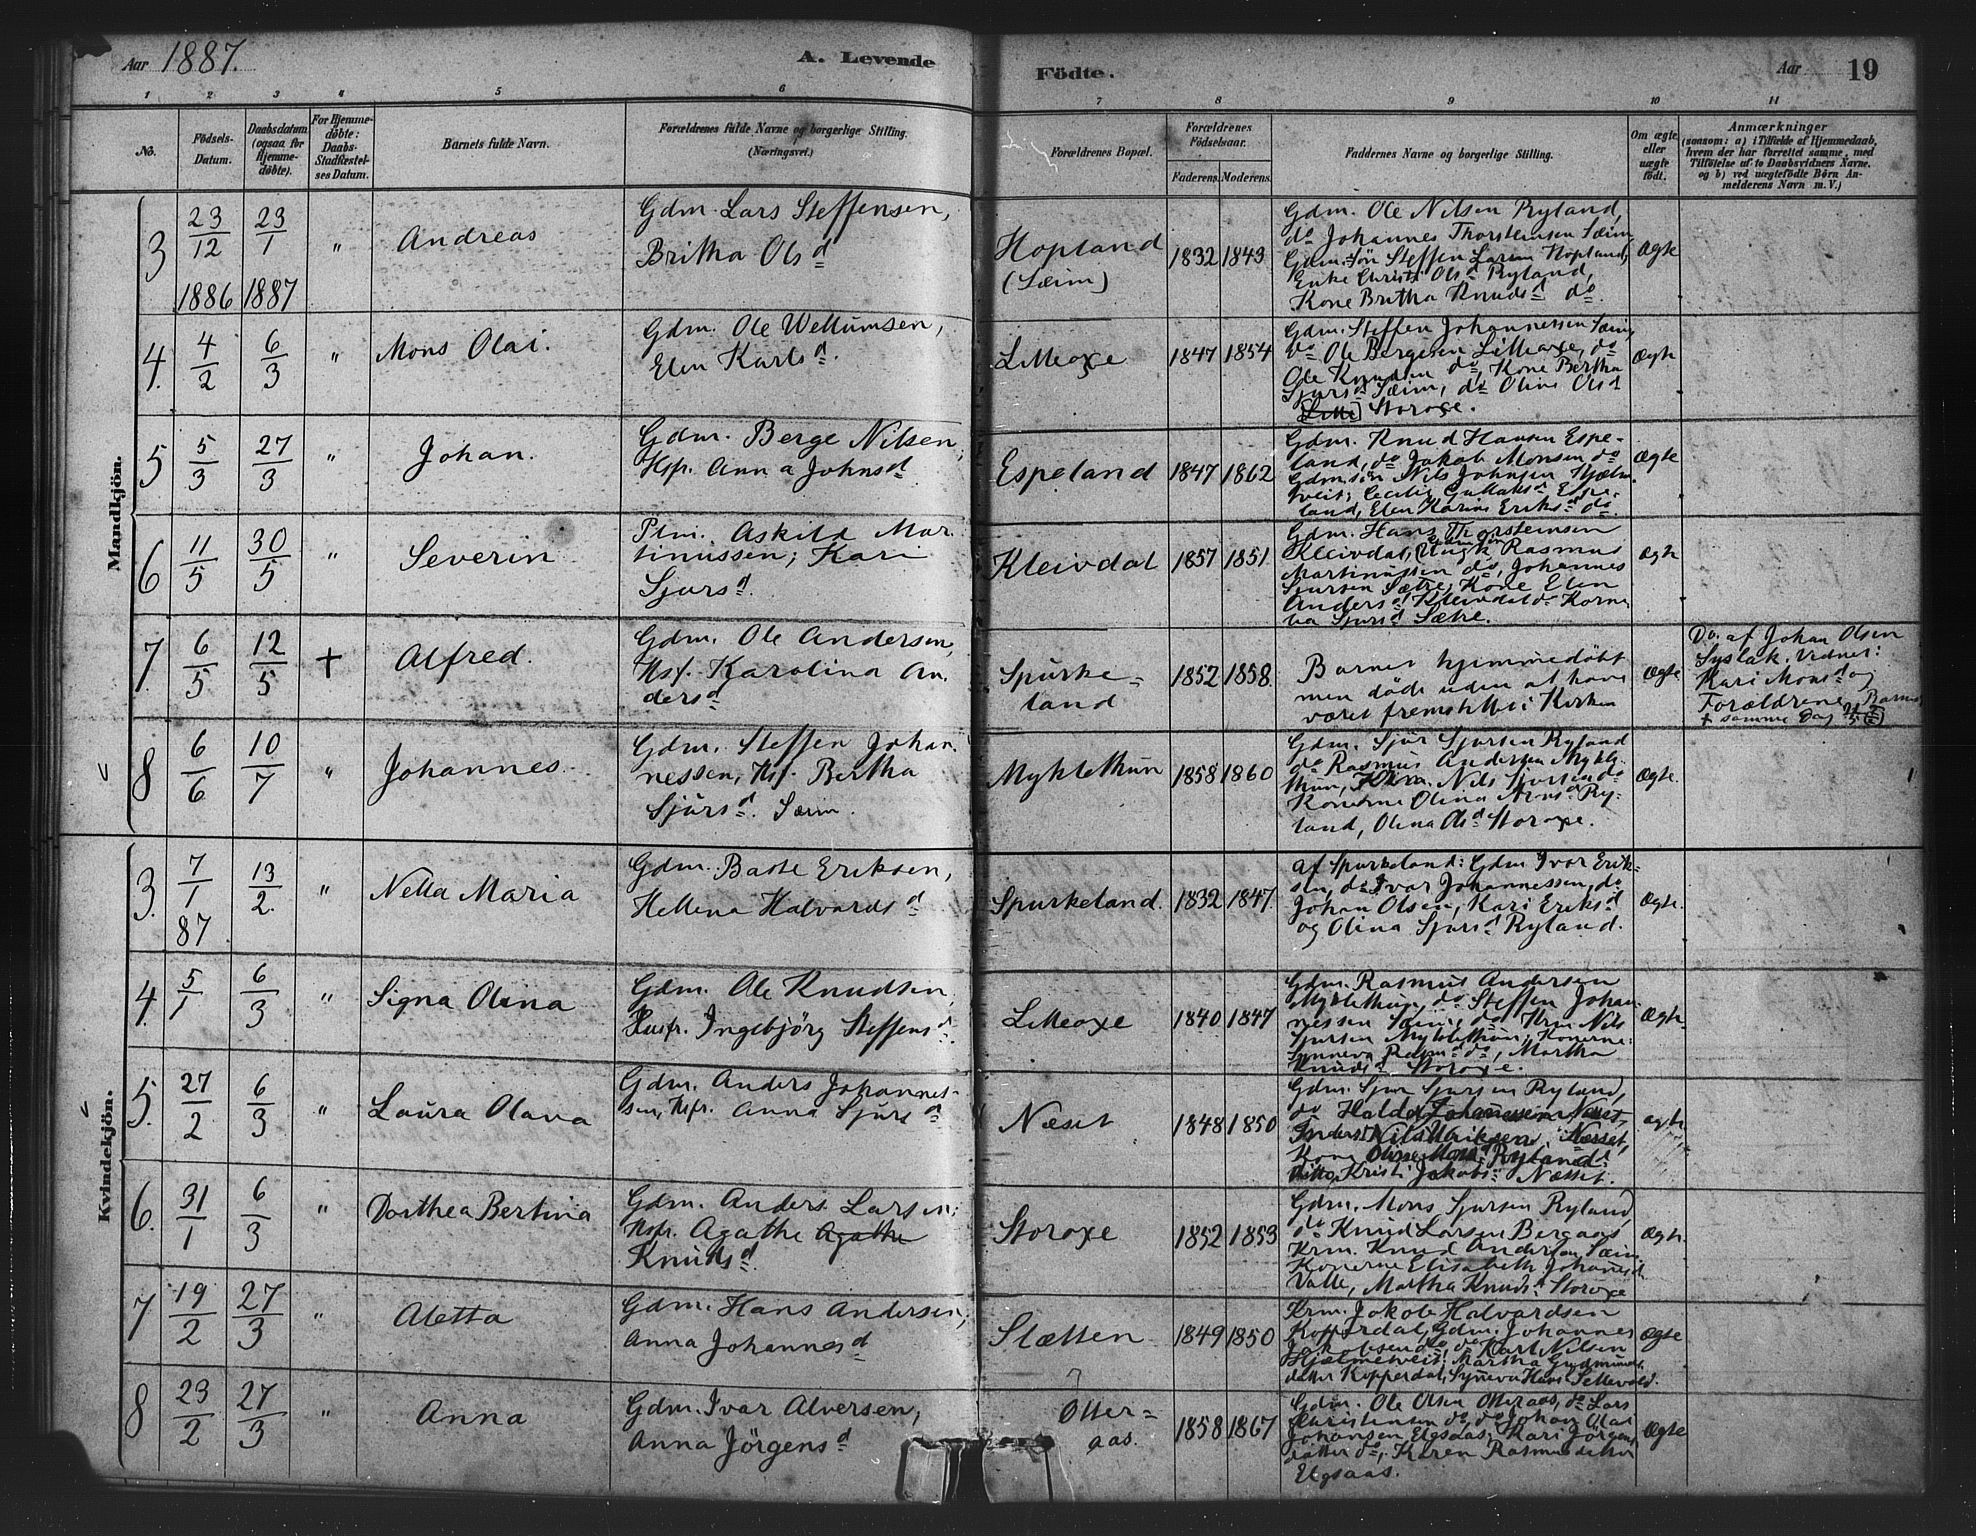 Aar 1887.
A. Levende
Födte.
Aar
19
1 2 3 4 5 6 7 8 9 10 11
No.
Födsels-Datum.
Daabsdatum (ogsaa for Hjemmedöbte).
For Hjemmedöbte: Daabs-Stadfæstelses Datum.
Barnets fulde Navn.
Forældrenes fulde Navne og borgerlige Stilling. (Næringsvei.)
Forældrenes Bopæl.
Forældrenes Födselsaar.
Faderens. Moderens.
Faddernes Navne og borgerlige Stilling.
Om ægte eller uægte födt.
Anmærkninger
(saasom: a) i Tilfælde af Hjemmedaab, hvem der har forrettet samme, med Tilföielse af to Daabsvidners Navne, og b) ved uægtefödte Börn Anmelderens Navn m. V.)
Mandkjön.
3 23/12 1886 23/1 1887 " Andreas
Gdm. Lars Steffensen,
Britha Olsd
Hopland
(Sæim)
1832 1849
Gdm. Ole Nilsen Ryland,
do Johannes Thorsteinsen Sæim,
Gdm.sön Steffen Larsen Hopland,
Enke Christi Olsd Ryland,
Kone Britha Knudsd do.
Ægte
4. 4/2 6/3 " Mons Olai.
Gdm. Ole Wellumsen,
Elen Karlsd
Lilleoxe
1847 1854
Gdm. Steffen Johannessen Sæim,
do Ole Bergesen Lilleoxe, do
Ole Knudsen do, Kone Bertha
Sjursd Sæim, do Oline Olsd
Storoxe.
Ægte
5 5/3 27/3 " Johan.
Gdm. Berge Nilsen,
Hsf. Anna Johnsd
Espeland
1847 1862
Gdm. Knud Hansen Espe-
land, do Jakob Monsen do
Gdmsön Nils Johnsen Hjelm-
tveit, Cecilie Gullaksd Espe-
land, Elen Karine Eriksd do.
Ægte
6 11/5 30/5 " Severin
Plm. Askild Mar-
tinussen; Kari
Sjursd.
Kleivdal
1857 1851
Gdm. Hans Thorsteinsen
Kleivdal, Ungk. Rasmus
Martinussen do, Johannes
Sjursen Sætre, Kone Elen
Andersd Kleivdal do Korne-
lia Sjursd Sætre.
Ægte
7. 6/5 12/5 + Alfred.
Gdm. Ole Andersen,
Hsf. Karolina An-
dersd
Spurke-
land
1852 1858.
Barnet hjemmedöbt
men döde uden at have
været fremstillet i Kirken
Ægte
Do. af Johan Olsen
Syslak. Vidner:
Kari Monsd og
Forældrene. Barnet
+ samme Dag
8 6/6 10/7 " Johannes.
Gdm. Steffen Johan-
nessen, Hsf. Bertha
Sjursd. Sæim.
Myklethun
1858 1860
Gdm. Sjur Sjursen Ryland
do Rasmus Andersen Mykle-
thun, Nils Sjursen do
Konerne Olina Monsd Ry-
land, Olina Olsd Storoxe.
Ægte.
Kvindekjön.
3. 7/1 87 13/2. " Nella Maria
Gdm. Baste Eriksen,
Hellena Halvardsd
Spurkeland.
1832 1847
af Spurkeland: Gdm Ivar Erik-
sen, do Ivar Johannessen, do
Johan Olsen, Kari Eriksd
og Olina Sjursd Ryland.
Ægte.
4. 5/1 6/3 " Signa Olina
Gdm. Ole Knudsen,
Husfr. Ingebjörg Steffensd.
Lilleoxe
1840 1847
Gdm. Rasmus Andersen
Myklethun, do Steffen Johan-
nessen Sæim, Krm Nils
Sjursen Myklethun; Konerne:
Synneva Rasmd do, Martha
Knudsd Storoxe.
Ægte.
5. 27/2 6/3 " Laura Olava
Gdm. Anders Johannes-
sen, Hsfr. Anna Sjursd
Næset
1848 1850
Gdm. Sjur Sjursen Ryland,
do Haldor Johannessen Næset,
Inderst Nils Næsset,
Kone Oline Monsd Ryland
Ditto Kristi Jakobsd Næsset.
Ægte
6. 31/1 6/3 " Dorthea Bertina
Gdm. Anders Larsen;
Hsfr. Agathe Agathe
Knudsd.
Storoxe
1852 1853
Gdm. Mons Sjursen Ryland,
do Knud Larsen Bergaas
Krm. Knud Andersen Sæim
Konerne Elisabeth Johannesd
Valle, Martha Knudsd Storoxe
Ægte.
7 19/2 27/3 " Aletta
Gdm. Hans Andersen;
Anna Johannesd
Sletten
1849 1850
Krm. Jakob Halvardsen
Kopperdal, Gdm. Johannes
Jakobsen do, do Karl Nilsen
Hjelmetveit, Martha Gudmunds-
datter Kopperdal, Synneva Hans. Sellevold.
Ægte
8 23/2 27/3 " Anna
Gdm. Ivar Alversen,
Anna Jörgensd
Otter-
aas.
1858 1867
Gdm. Ole Olsen Otteraas, do Lars
Christensen do, do Johan Olai
Johansen Elgsaas, Kari Jörgens-
datter do, Karen Rasmusdatter
Elgsaas.
Ægte